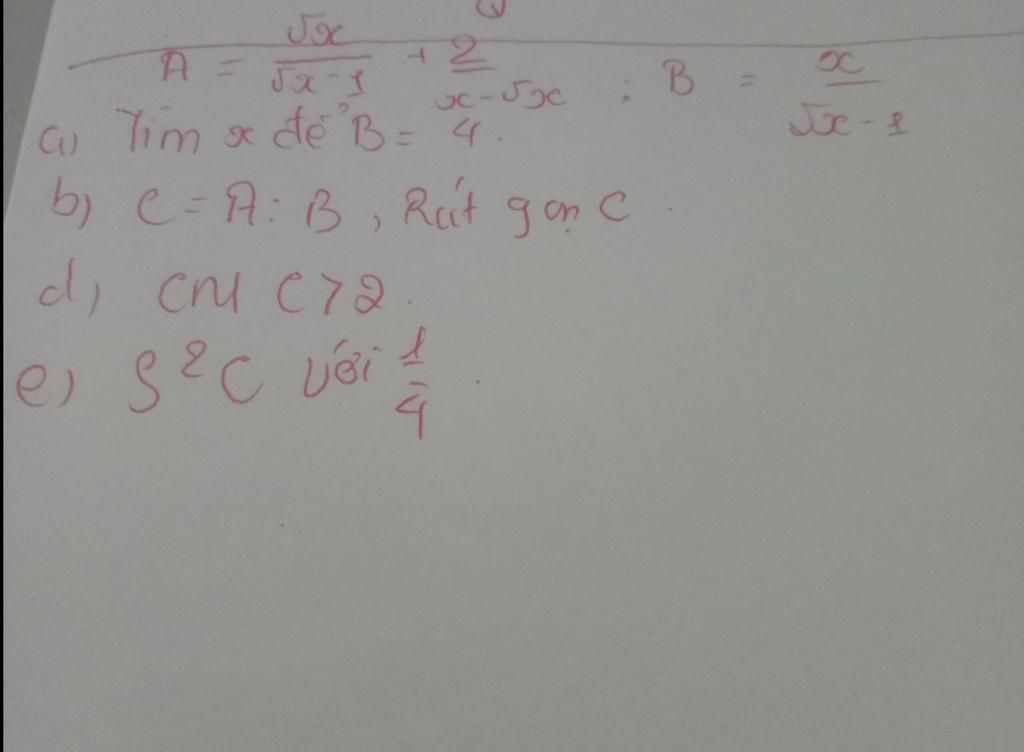 A = \frac{√x}{√x - 1} + \frac{2}{x - √x} ; B = \frac{x}{√x - 1}
a) Tìm x để B = 4.
b) C = A : B, Rút gọn C.
d) CM C > 2.
e) S² C với \frac{1}{4}.